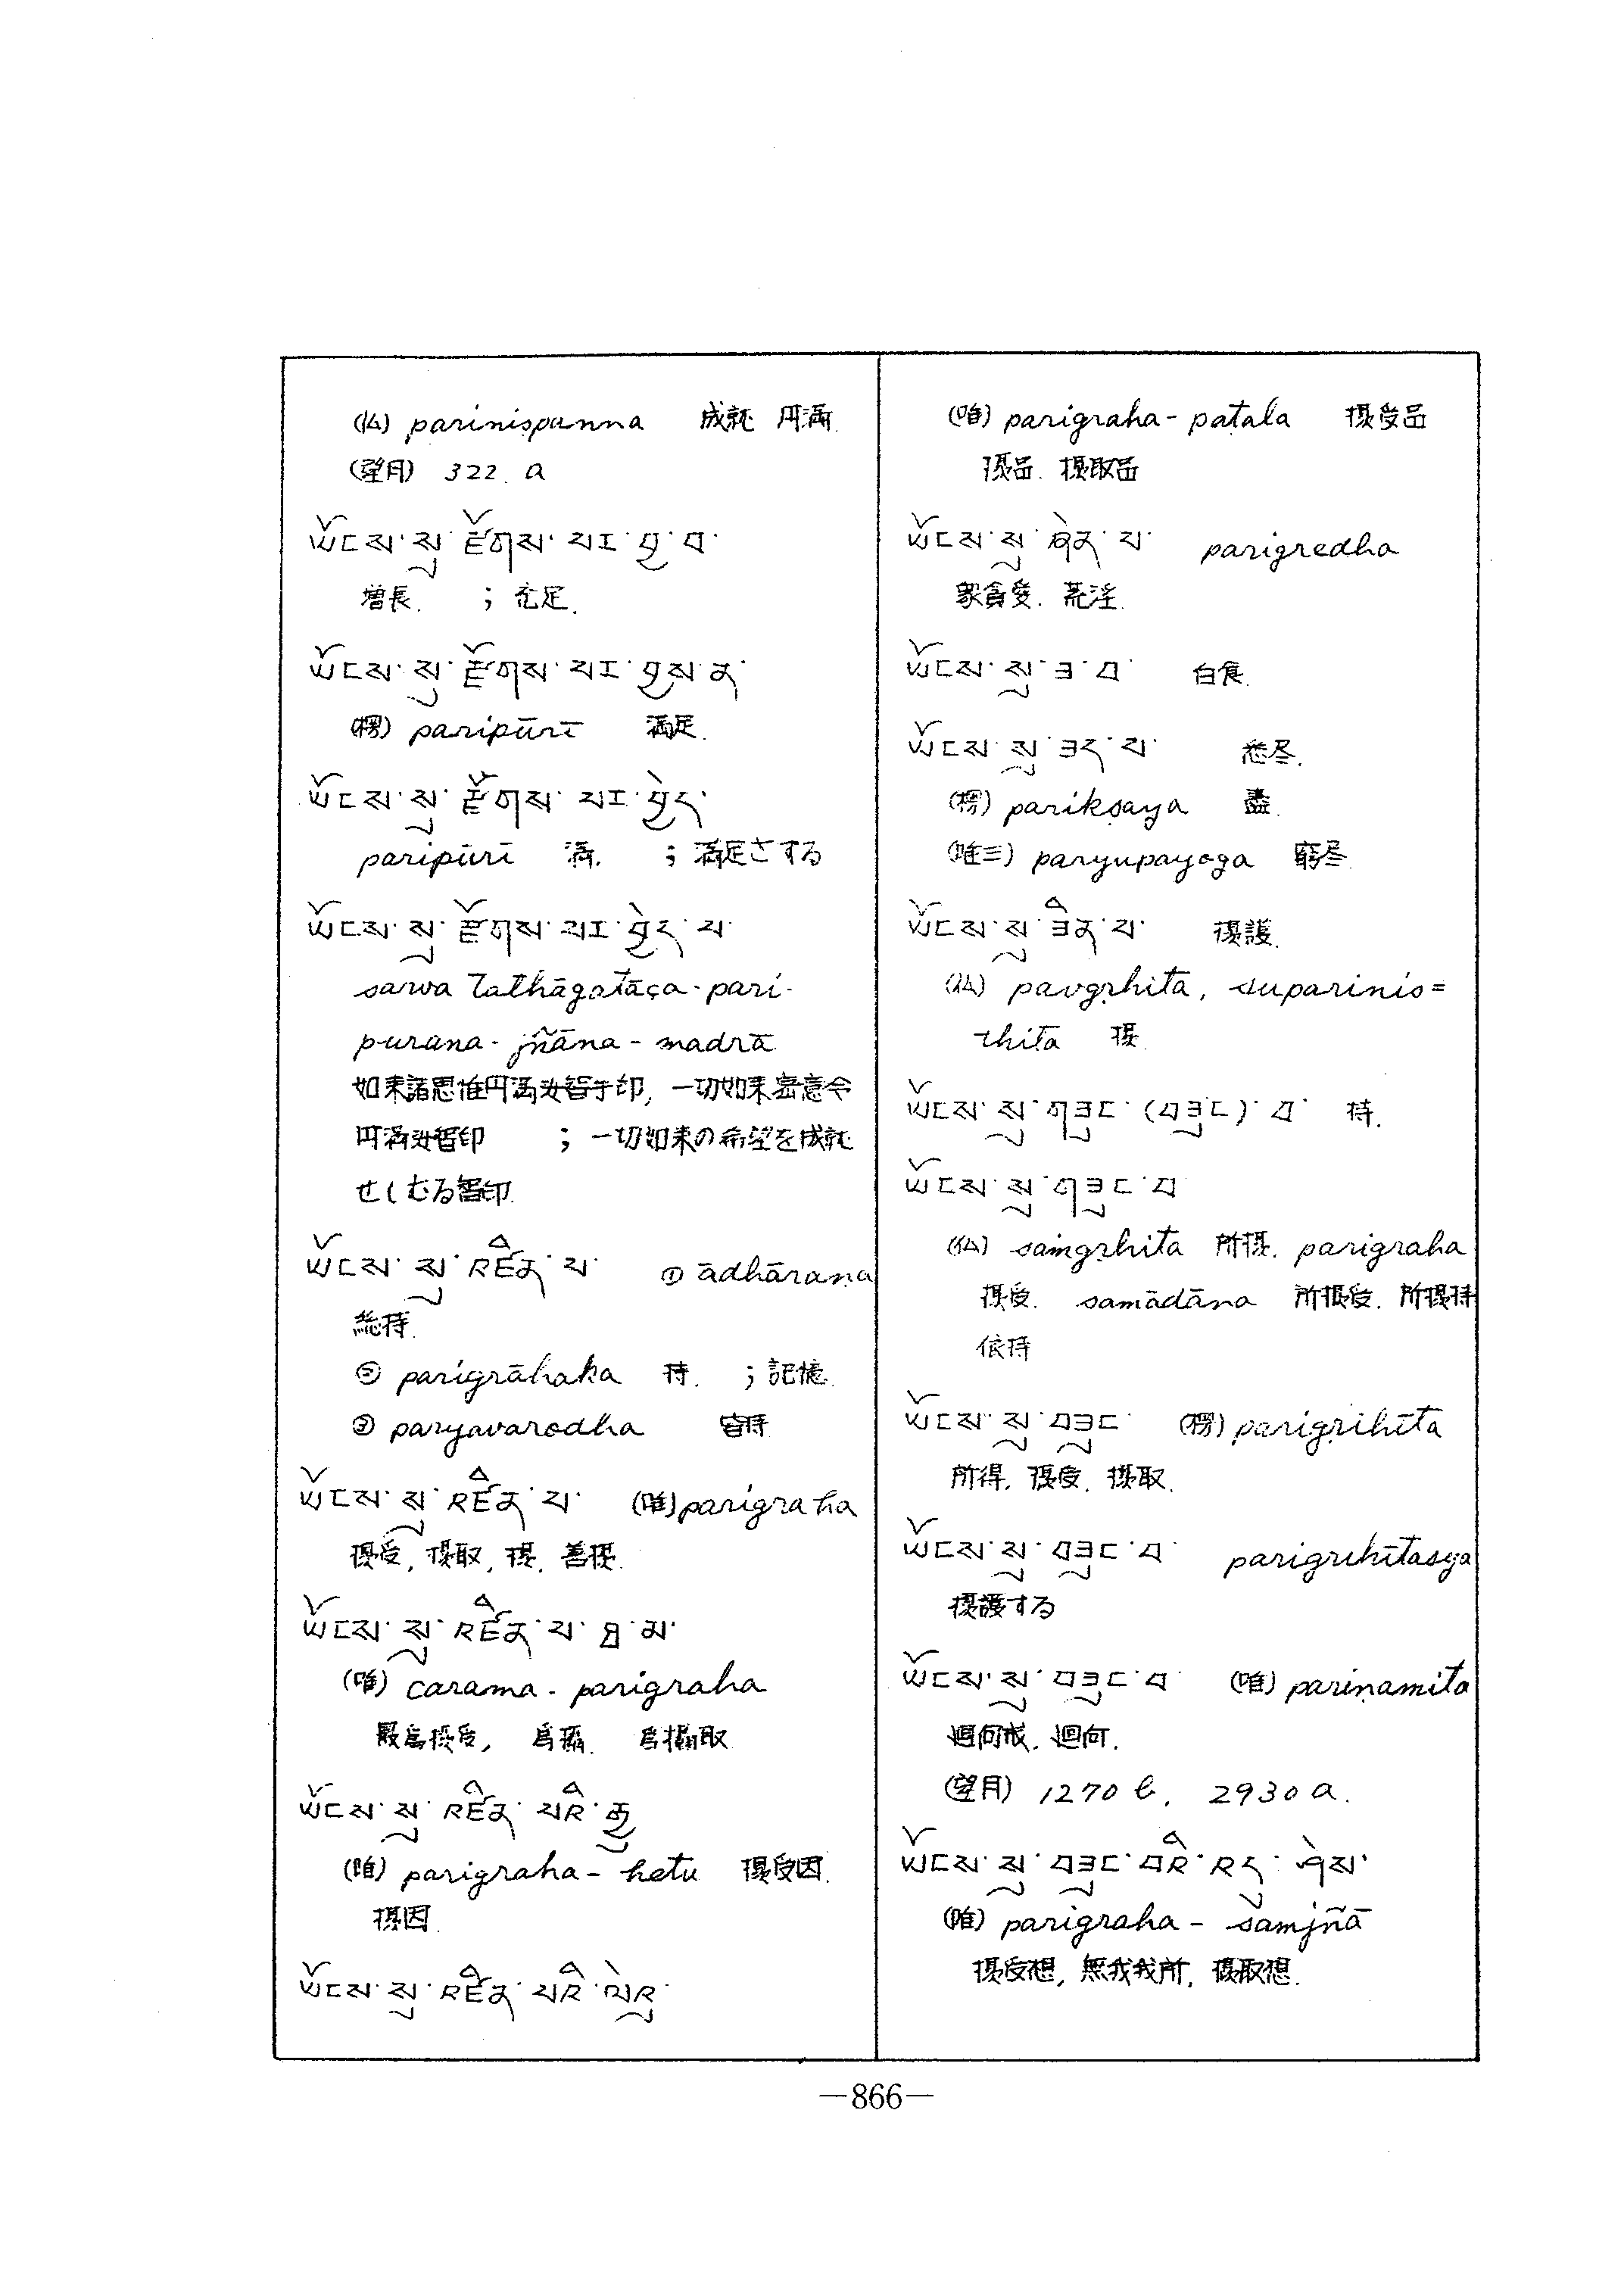 (仏) pariniṣpanna 成就 円満.
(望月) 322. a
ཡོངས་སུ་རྫོགས་པར་བྱ་བ་
増長. ; 充足.
ཡོངས་སུ་རྫོགས་པར་བྱས་ན་
(楞) paripūrī 満足.
ཡོངས་སུ་རྫོགས་པར་བྱེད་
paripūrī 満. ; 満足さする
ཡོངས་སུ་རྫོགས་པར་བྱེད་པ་
sarva Tathāgatāça-pari-
purana-jñāna-madrā
如来諸思惟円満 智手印, 一切如来密意令
円満 智印 ; 一切如来の希望を成就
せしむる智印.
ཡོངས་སུ་འཛིན་པ་ ① ādhāraṇa
総持.
② parigrāhaka 持. ; 記憶.
③ paryavarodha 皆持
ཡོངས་སུ་འཛིན་པ་ (唯) parigraha
摂受, 摂取, 摂. 善摂.
ཡོངས་སུ་འཛིན་པ་ཐ་མ་
(唯) carama-parigraha
最為摂受, 為攝. 為攝取
ཡོངས་སུ་འཛིན་པའི་རྒྱུ
(唯) parigraha-hetu 摂受因.
摂因.
ཡོངས་སུ་འཛིན་པའི་ལེའུ་
(唯) parigraha-paṭala 摂受品
摂品. 摂取品
ཡོངས་སུ་ཞེན་པ་ parigredha
貪愛. 荒淫.
ཡོངས་སུ་ཟ་བ་ 白食.
ཡོངས་སུ་ཟད་པ་ 悉尽.
(楞) parikṣaya 盡.
(唯三) paryupayoga 窮尽.
ཡོངས་སུ་ཟིན་པ་ 摂護.
(仏) pavgṛhita, suparinis=
thita 摂.
ཡོངས་སུ་གཟུང་(བཟུང)་བ་ 持.
ཡོངས་སུ་གཟུང་བ
(仏) saṁgṛhita 所摂. parigraha
摂受. samādāna 所摂受. 所摂持
依持
ཡོངས་སུ་བཟུང་ (楞) parigṛihīta
所得. 摂受. 摂取.
ཡོངས་སུ་བཟུང་བ་ parigrihītasya
摂護する
ཡོངས་སུ་བཟུང་བ་ (唯) pariṇamita
迴向成. 迴向.
(望月) 1270 b. 2930 a.
ཡོངས་སུ་བཟུང་བའི་འདུ་ཤེས་
(唯) parigraha-samjñā
摂受想, 無我我所, 摂取想.
—866—